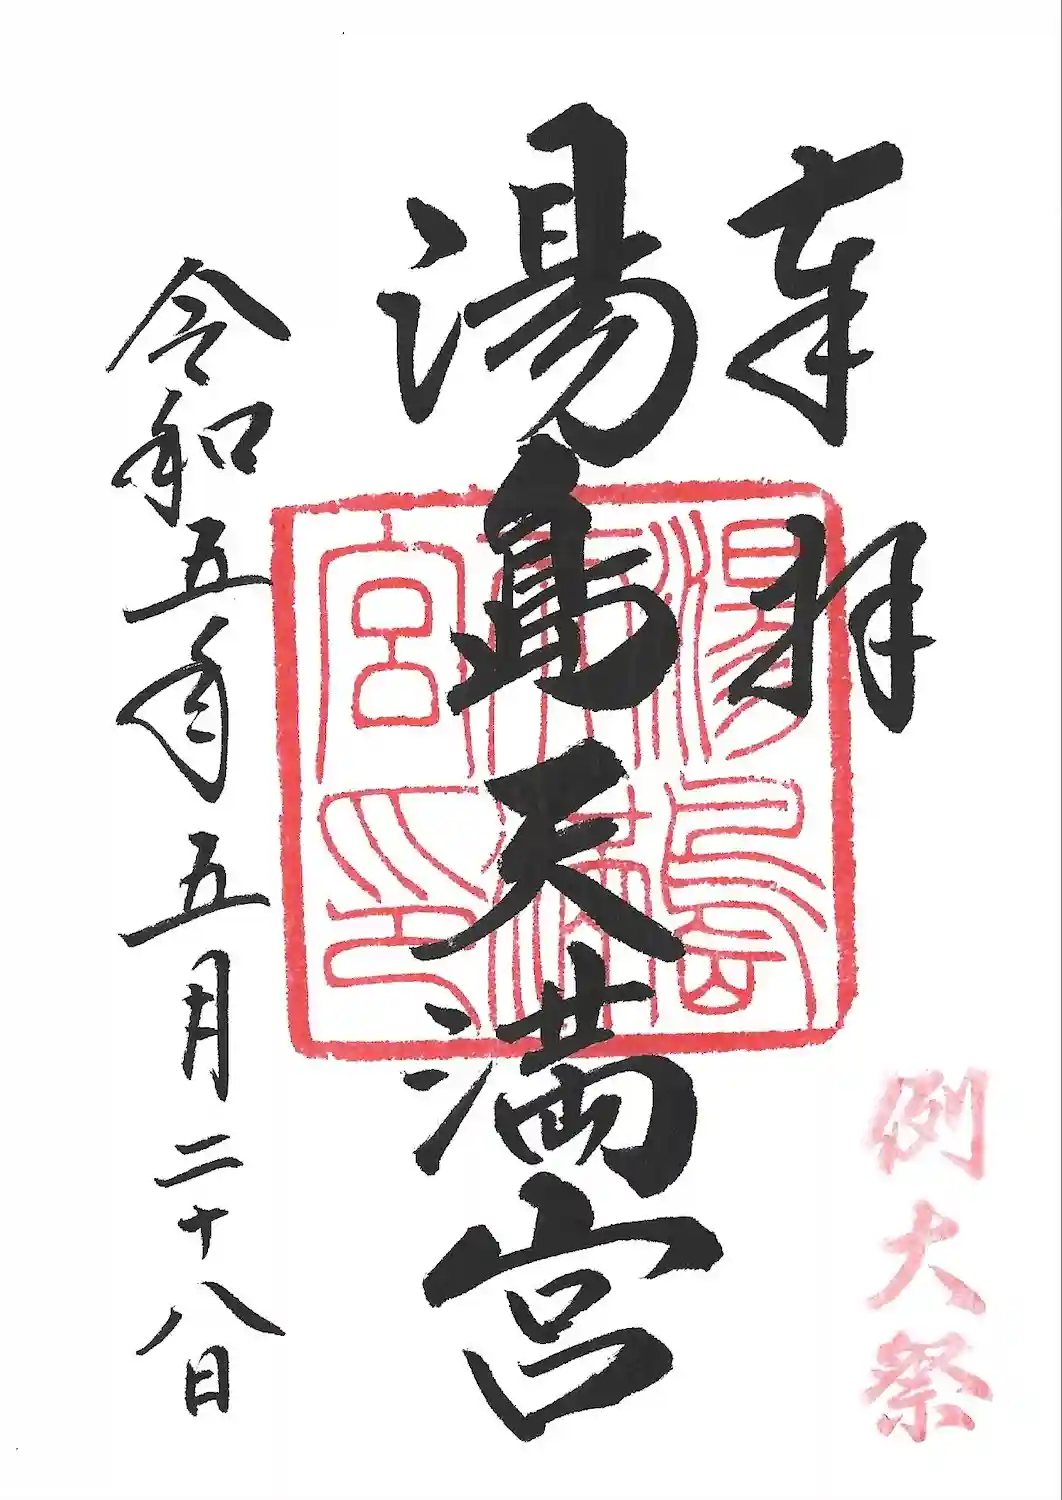 奉拝
例大祭
湯島天満宮
湯島
天満
宮印
令和五年五月二十八日